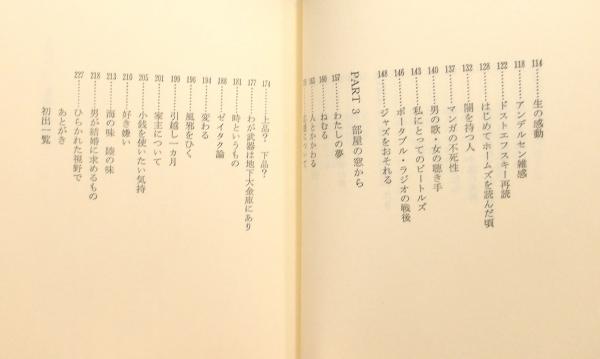 114 生の感動
118 アンデルセン雑感
122 ドストエフスキー再読
128 はじめてホームズを読んだ頃
132 闇を持つ人
137 マンガの不死性
140 男の歌・女の聴き手
143 私にとってのビートルズ
146 ポータブル・ラジオの戦後
148 ジャズをおそれる
PART 3 部屋の窓から
157 わたしの夢
160 ねむる
163 人とかかわる
174 上品？ 下品？
177 わが武器は地下大金庫にあり
181 時というもの
188 ゼイタク論
194 変わる
196 風邪をひく
199 引越し一カ月
201 家主について
205 小銭を使いたい気持
210 好き嫌い
213 海の味 陸の味
218 男が結婚に求めるもの
227 ひらかれた視野で
あとがき
初出一覧